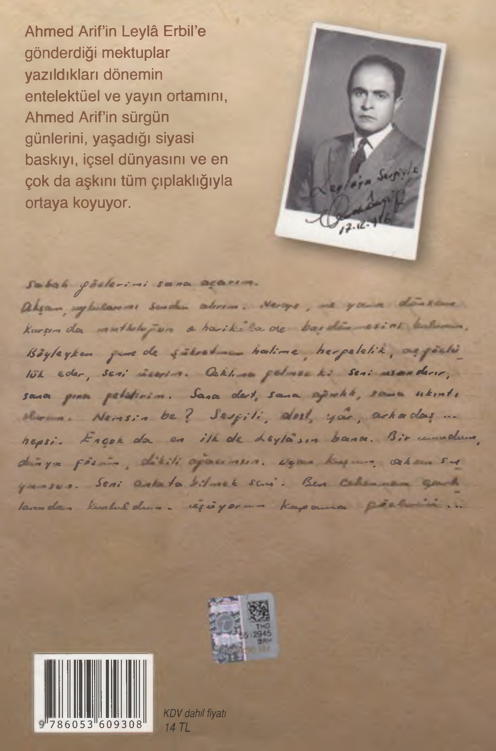 Ahmed Arif'in Leylâ Erbil'e
gönderdiği mektuplar
yazıldıkları dönemin
entelektüel ve yayın ortamını,
Ahmed Arif'in sürgün
günlerini, yaşadığı siyasi
baskıyı, içsel dünyasını ve en
çok da aşkını tüm çıplaklığıyla
ortaya koyuyor.
Sabah gözlerimi sana açarım.
Akşam, uykularımı senden alırım. Nereye, ne yana dönsem
karşımda mutluluğun o harikulade başdönmesini bulurum.
Böyleyken gene de şükretmem halime, hergelelik, açgözlü
lük eder, seni üzerim. Aklıma gelmez ki seni usandırır,
sana gına getiririm. Sana dert, sana ağırlık, sana sıkıntı
olurum. Nemsin be? Sevgili, dost, yâr, arkadaş ...
hepsi. En çok da en ilk de Leylâsın bana. Bir umudum,
dünya gözüm, dikili ağacımsın. Uçan kuşum, akan su
yumsun. Seni anlatabilmek seni. Ben cehennem çark
larından kurtuldum. üşüyorum kapama gözlerini ...
THG
2945
BRH
9 786053 609308
KDV dahil fiyatı
14 TL